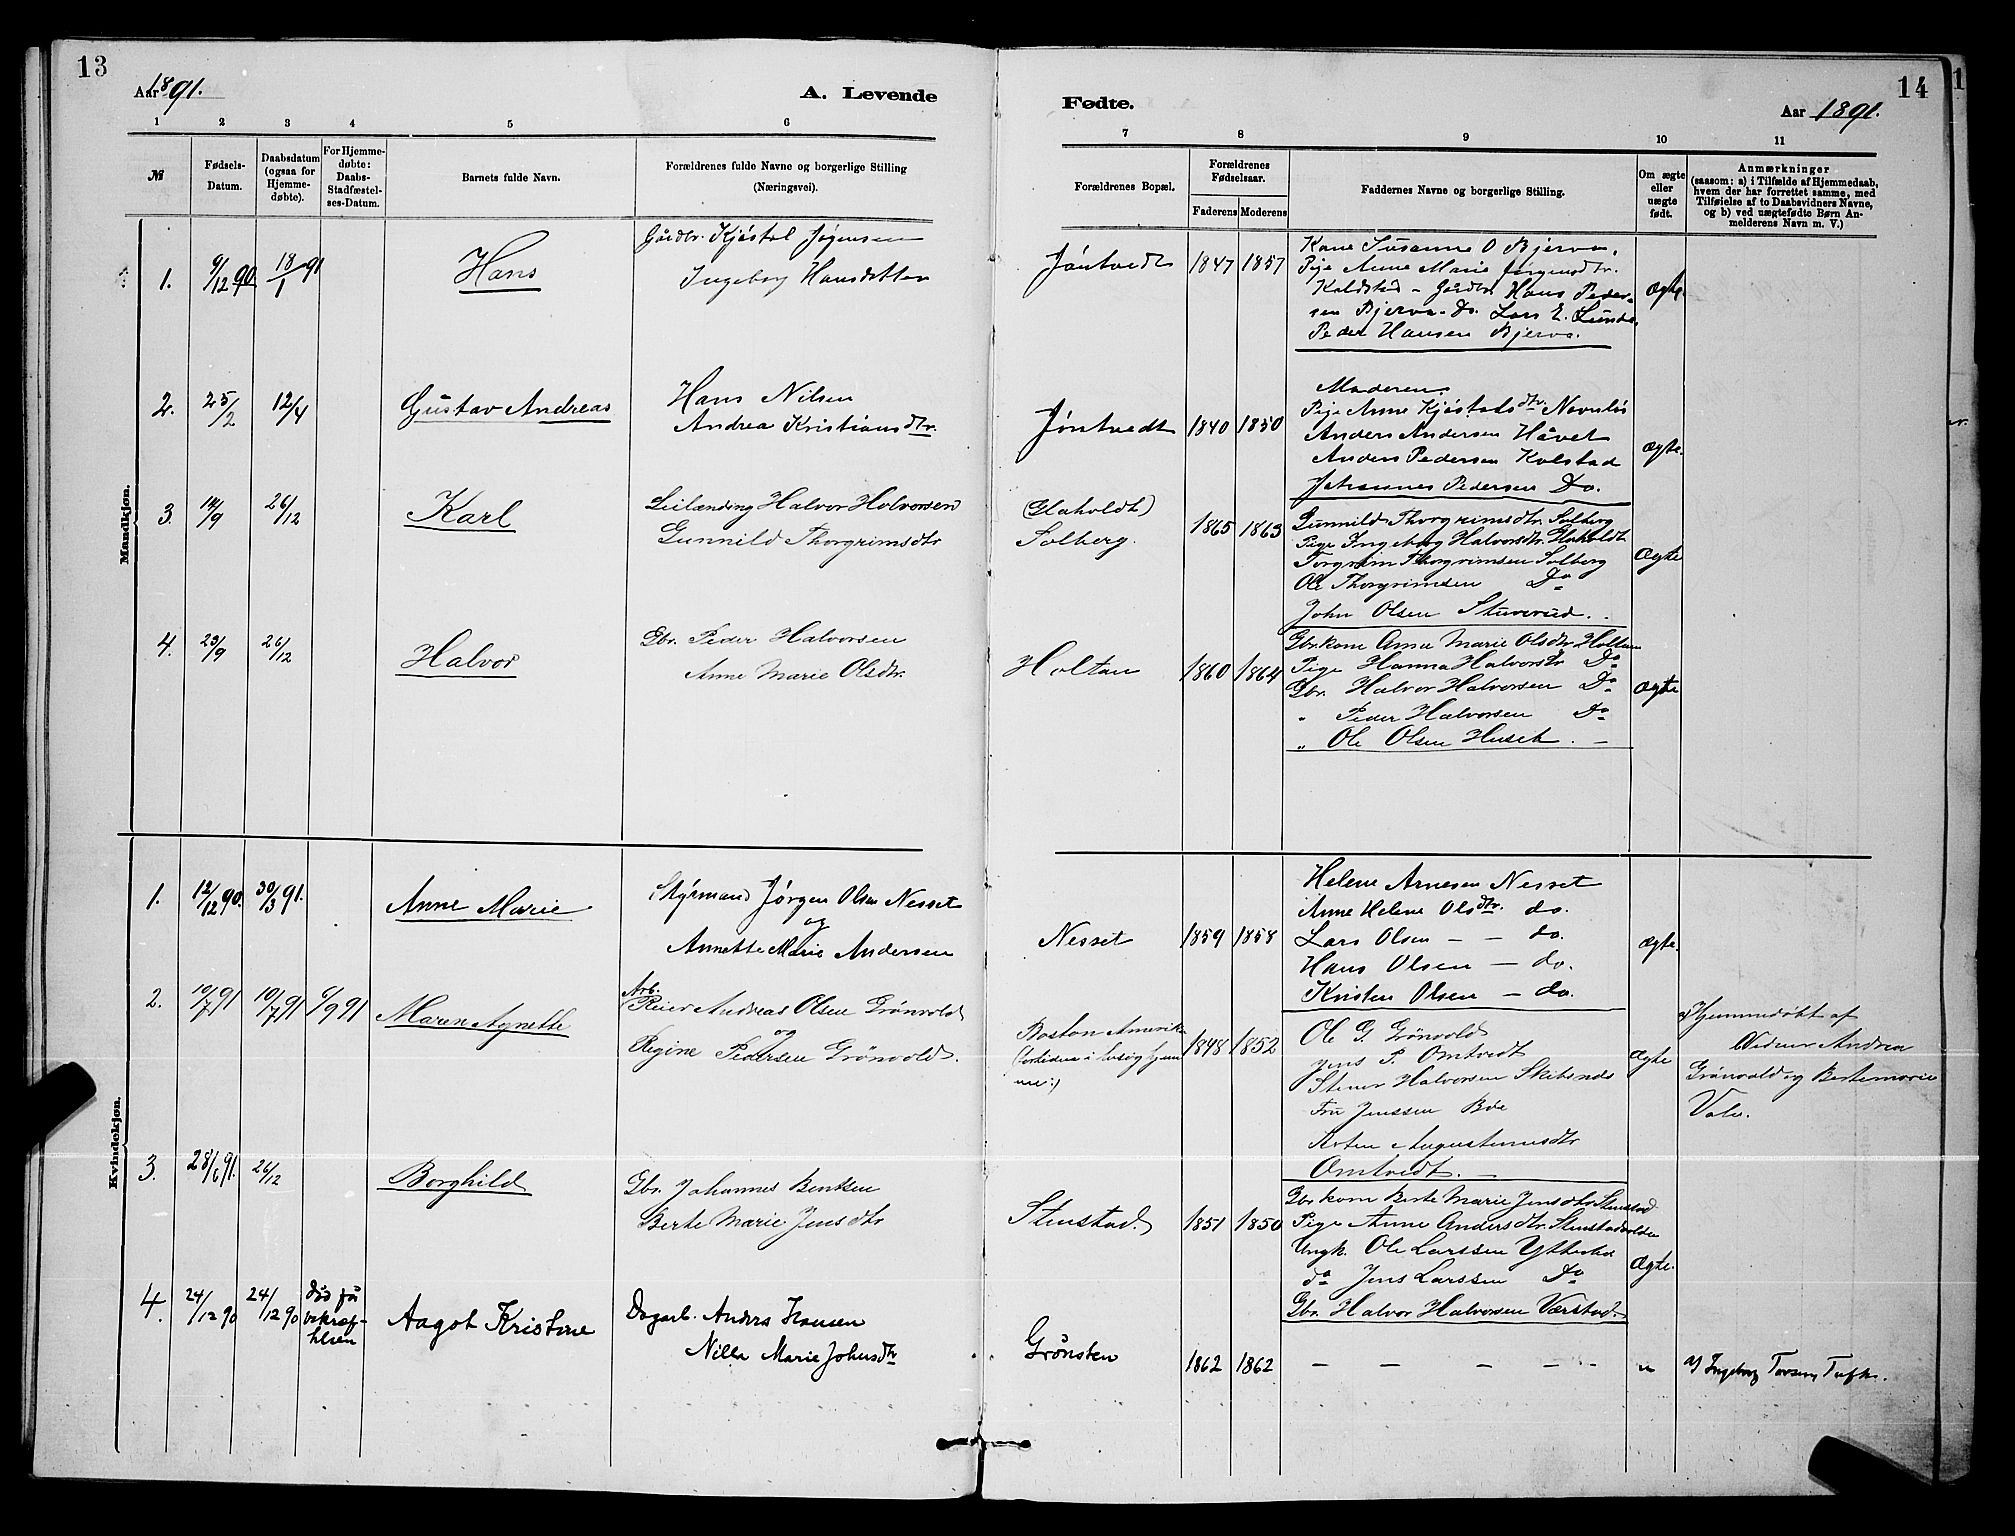 13
Aar 1891.
A. Levende
1 2 3 4 5 6
№
Fødsels-
Datum.
Daabsdatum
(ogsaa for
Hjemme-
døbte).
For Hjemme-
døbte:
Daabs-
Stadfæstel-
ses-Datum.
Barnets fulde Navn.
Forældrenes fulde Navne og borgerlige Stilling
(Næringsvei).
Mandkjøn.
1. 9/12 90 18/1 91 Hans
Gårdbr. Kjøstol Jøgensen
Ingeborg Hansdatter
2. 25/2 12/4 Gustav Andreas
Hans Nilsen
Andrea Kristiansdtr.
3. 14/9 26/12 Karl
Leilænding Halvor Halvorsen
Gunnild Thorgrimsdtr
4. 29/9 26/12 Halvor
Gbr. Peder Halvorsen
Anne Marie Olsdtr.
Kvindekjøn.
1. 12/12 90. 30/3 91. Anne Marie
Styrmand Jørgen Olsen Nesset
og
Annette Marie Andersen
2. 10/7 91 10/7 91 6/9 91 Maren Agnette
Arb.
Reier Andreas Olsen Grönvold
og
Regine Pedersen Grönvold.
3. 28/6 91. 26/12 Borghild
Gbr. Johannes Bentsen
Berte Marie Jensdtr
4. 24/12 90 24/12 90 Død før
bekræf-
telsen
Aagot Kristine
Dagarb. Anders Hansen
Nilla Marie Johnsdtr
14
Fødte.
Aar 1891.
7 8 9 10 11
Forældrenes Bopæl.
Forældrenes
Fødselsaar.
Faderens Moderens
Faddernes Navne og borgerlige Stilling.
Om ægte
eller
uægte
født.
Anmærkninger
(saasom: a) i Tilfælde af Hjemmedaab,
hvem der har forrettet samme, med
Tilføielse af to Daabsvidners Navne,
og b) ved uægtefødte Børn An-
melderens Navn m. V.)
Jöntvedt 1847 1857
Kone Susanne O Bjerva.
Pige Anne Marie Jørgensdtr.
Koldstad - Gårdbr. Hans Peder-
sen Bjerva. Do. Lars E. Lunde.
Peder Hansen Bjerva.
Ægte.
Jöntvedt 1840 1850
Moderen
Pige Anne Kjöstolsdtr. Navnlös
Anders Andersen Håvet
Anders Pedersen Kolstad
Johannes Pedersen Do.
Ægte.
(Glaholdt)
Solberg. 1865 1863
Gunnild Thorgrimsdtr. Solberg
Pige Ingeborg Halvorsdtr. Glaholdt
Torgrim Thorgrimsen Solberg
Ole Thorgrimsen Do
John Olsen Stuverud.
Ægte
Holtan 1860 1864
Gbrkone Anne Marie Olsdtr Holtan
Pige Hanna Halvorsdtr Do
Gbr. Halvor Halvorsen Do
" Peder Halvorsen Do
" Ole Olsen Huset.
Ægte
Nesset 1859 1858
Helene Arnesen Nesset
Anne Helene Olsdtr. do.
Lars Olsen - - do.
Hans Olsen - do.
Kristen Olsen - do.
Ægte.
Boston Amerik
1848 1852
Ole G. Grönvold
Jens P. Omtvedt
Stener Halvorsen Skilsnæs
Fru Jenssen Böe
Augustinusdtr
Omtvedt.
Ægte
a) Hjemmedøbt af
Vidner Andrea
Grönvold og Bertemarie
Vale.
Stenstad. 1851 1850
Gbrkone Berte Marie Jensdtr Stenstad
Pige Anne Andersdtr. Stenstadvolden
Ungk. Ole Larssen Ytterbø
do Jens Larssen Do
Gbr. Halvor HalvorsenVærstad.
Ægte.
Grönsten 1862 1862
- - - - -
"
a) Ingeborg Tufte.